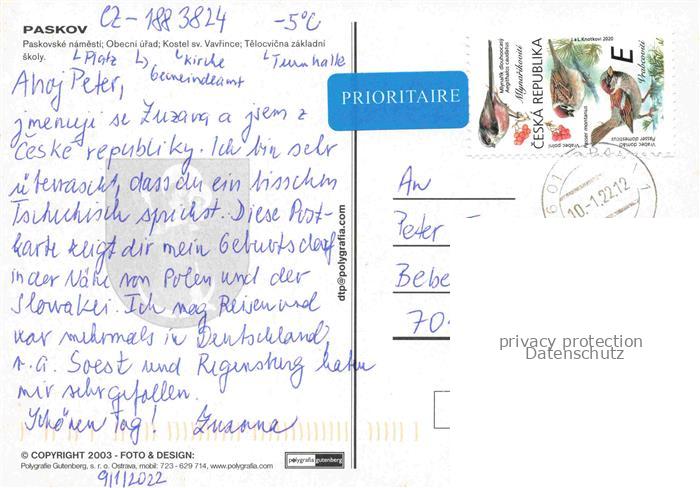 CZ-1883824   -5°C
PASKOV
Paskovské náměstí; Obecní úřad; Kostel sv. Vavřince; Tělocvična základní
školy.
Platz
Kirche
Turnhalle
Gemeindeamt
Ahoj Peter,
jmenuji se Zuzana a jsem z
České republiky. Ich bin sehr
überrascht, dass du ein bisschen
Tschechisch sprichst. Diese Post-
karte zeigt dir mein Geburtsdorf
in der Nähe von Polen und der
Slowakei. Ich mag Reisen und
war mehrmals in Deutschland,
u.a. Soest und Regensburg haben
mir sehr gefallen.
Schönen Tag! Zuzana
© COPYRIGHT 2003 - FOTO & DESIGN:
Polygrafie Gutenberg, s. r. o. Ostrava, mobil: 723 - 629 714, www.polygrafia.com
polygrafiagutenberg
9/1/2022
dtp@polygrafia.com
PRIORITAIRE
Mlynařík dlouhoocasý
Aegithalos caudatus
Mlynaříkovití
ČESKÁ REPUBLIKA
J. a L. Knotkovi 2020
E
Vrabec polní
Passer montanus
Vrabec domácí
Passer domesticus
Vrabcovití
601
10.-1.22.12
1
An
Peter
Bebe
70
privacy protection
Datenschutz